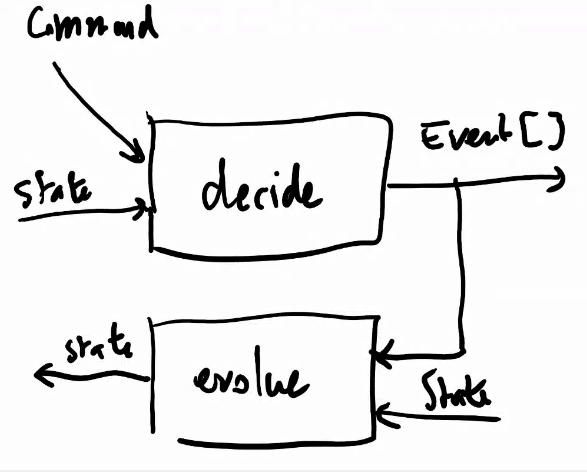 Command
Event[]
State
decide
state
evolve
State